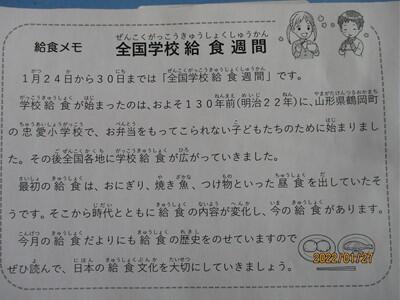 給食メモ 全国学校給食週間
1月24日から30日までは「全国学校給食週間」です。
学校給食が始まったのは、およそ130年前(明治22年)に、山形県鶴岡町
の忠愛小学校で、お弁当をもってこられない子どもたちのために始まりまし
た。その後全国各地に学校給食が広がっていきました。
最初の給食は、おにぎり、焼き魚、つけ物といった昼食を出していたそ
うです。そこから時代とともに給食の内容が変化し、今の給食があります。
今月の給食だよりにも給食の歴史をのせていますので
ぜひ読んで、日本の給食文化を大切にしていきましょう。
2022/01/27